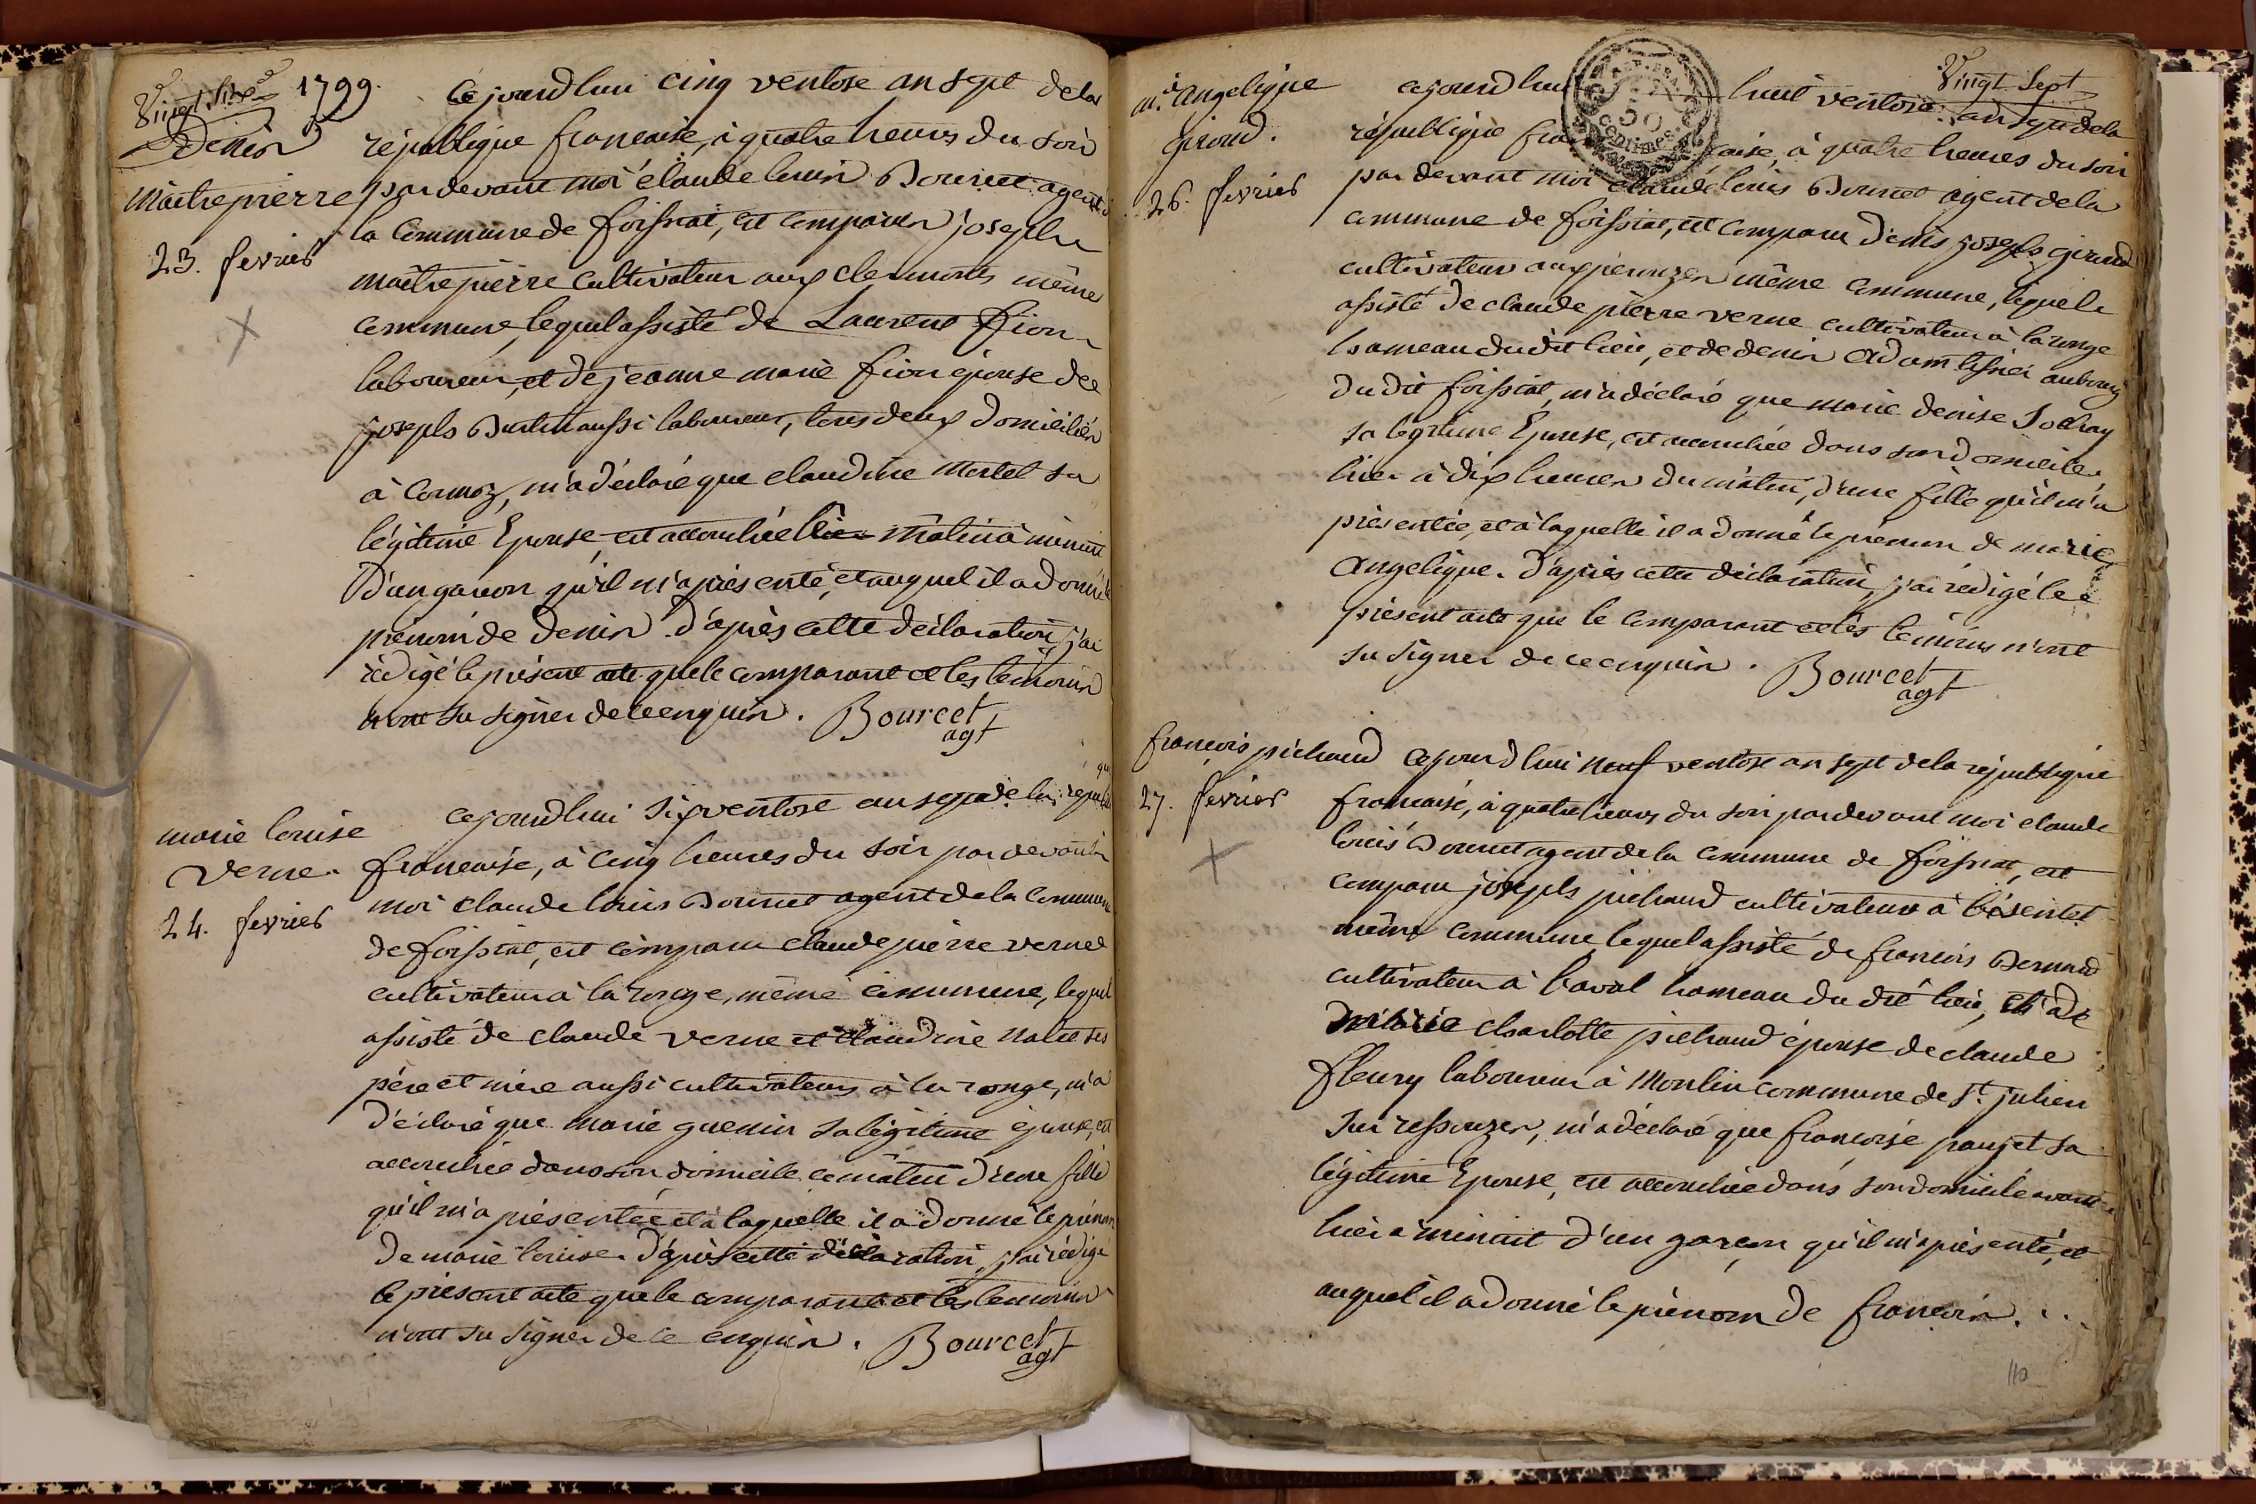 Vingt Six
1799.
Denis
Maitrepierre
23. fevrier
Cejourdhui cinq ventose an sept de la
république francaise, à quatre heures du soir
par devant moi claude louis Bourcet agent d
la commune de foissiat, est comparu joseph
maitrepierre cultivateur aux clermonts même
commune, lequel assisté de Laurent fion
laboureur, et de jeanne marie fion épouse de
joseph aussi laboureur, tous deux domiciliés
à Cormoz, m'a déclaré que claudine Mortel sa
légitime Epouse, est accouchée hier matin à minuit
D'un garcon qu'il m'a présenté, et auquel il a donné le
prénom de Denis. D'après cette déclaration, j'ai
rédigé le présent acte que le comparant et les témoins
n'ont su signer de ce enquis. Bourcet
agt
marie louise
verne.
24. fevrier
cejourdhui six ventose an sept de la republi
que
francaise, à cinq heures du soir par devant
moi claude louis Bourcet agent de la commune
de foissiat, est comparu claude pierre verne
cultivateur à la ronge, même commune, lequel
assisté de claude verne et claudine ses
père et mère aussi cultivateurs à la ronge, m'a
déclaré que marie guenin sa légitime épouse, est
accouchée dans son domicile ce matin d'une fille
qu'il m'a présentée et à laquelle il a donné le prénom
de marie louise. D'après cette déclaration, j'ai rédigé
le présent acte que le comparant et les témoins
n'ont su signer de ce enquis. Bourcet
agt
Vingt Sept
m.ie angelique
giroud.
26. fevrier
cejourdhui huit ventose an sept de la
république francaise, à quatre heures du soir
par devant moi claude louis Bourcet agent de la
commune de foissiat, est comparu Denis joseph giroud
cultivateur aux perouzes même commune, lequel
assisté de claude pierre verne cultivateur à la ronge
hameau dudit lieu, et de denis adam tissier au bourg
du dit foissiat, m'a déclaré que marie denise
sa légitime Epouse, est accouchée dans son domicile
hier à dix heures du matin, d'une fille qu'il m'a
présentée, et à laquelle il a donné le prénom de marie
Angelique. D'après cette déclaration, j'ai rédigé le
présent acte que le comparant et les témoins n'ont
su signer de ce enquis. Bourcet
agt
françois pichaud
27. fevrier
cejourdhui neuf ventose an sept de la république
francaise, à quatre heures du soir par devant moi claude
louis Bourcet agent de la commune de foissiat, est
comparu joseph pichaud cultivateur à bésentet
même commune, lequel assisté de francois Bernard
cultivateur à l'aval hameau du dit lieu, et de
marie charlotte pichaud épouse de claude
fleury laboureur à Moulin commune de St. julien
sur ressouze, m'a déclaré que francoise pauget sa
légitime Epouse, est accouchée dans son domicile avant
hier à minuit d'un garçon qu'il m'a présenté, et
auquel il a donné le prénom de francois. . . .
110